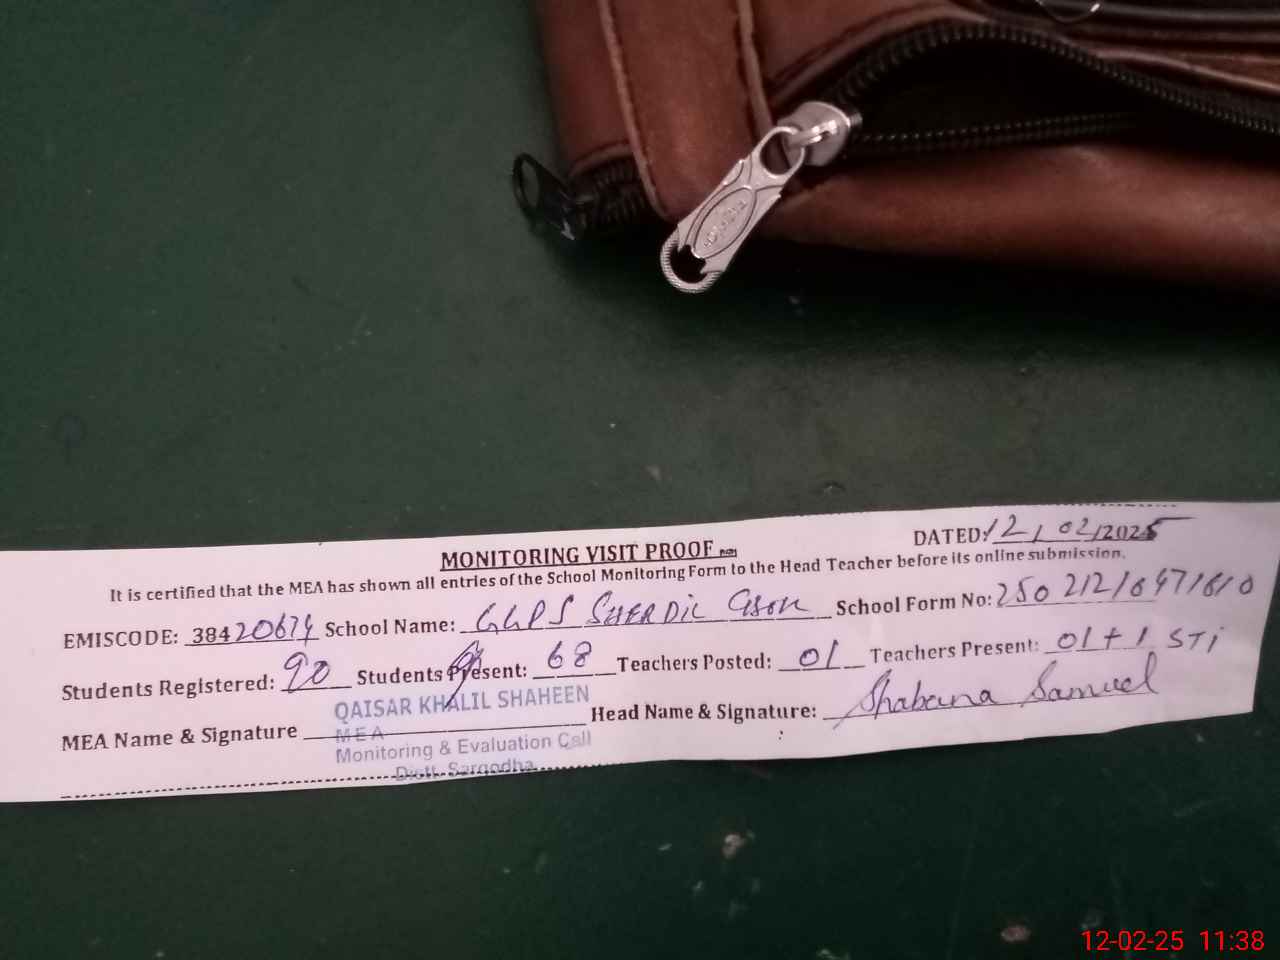 MONITORING VISIT PROOF
DATED: 12/02/2025
It is certified that the MEA has shown all entries of the School Monitoring Form to the Head Teacher before its online submission.
EMISCODE: 38420674 School Name: GGPS SHERDIL School Form No:
Students Registered: 90 Students Present: 68 Teachers Posted: 01 Teachers Present: 01 + 1 STi
MEA Name & Signature Head Name & Signature: Shabana Samuel
QAISAR KHALIL SHAHEEN
MEA
Monitoring & Evaluation Call
Distt. Sargodha
12-02-25 11:38